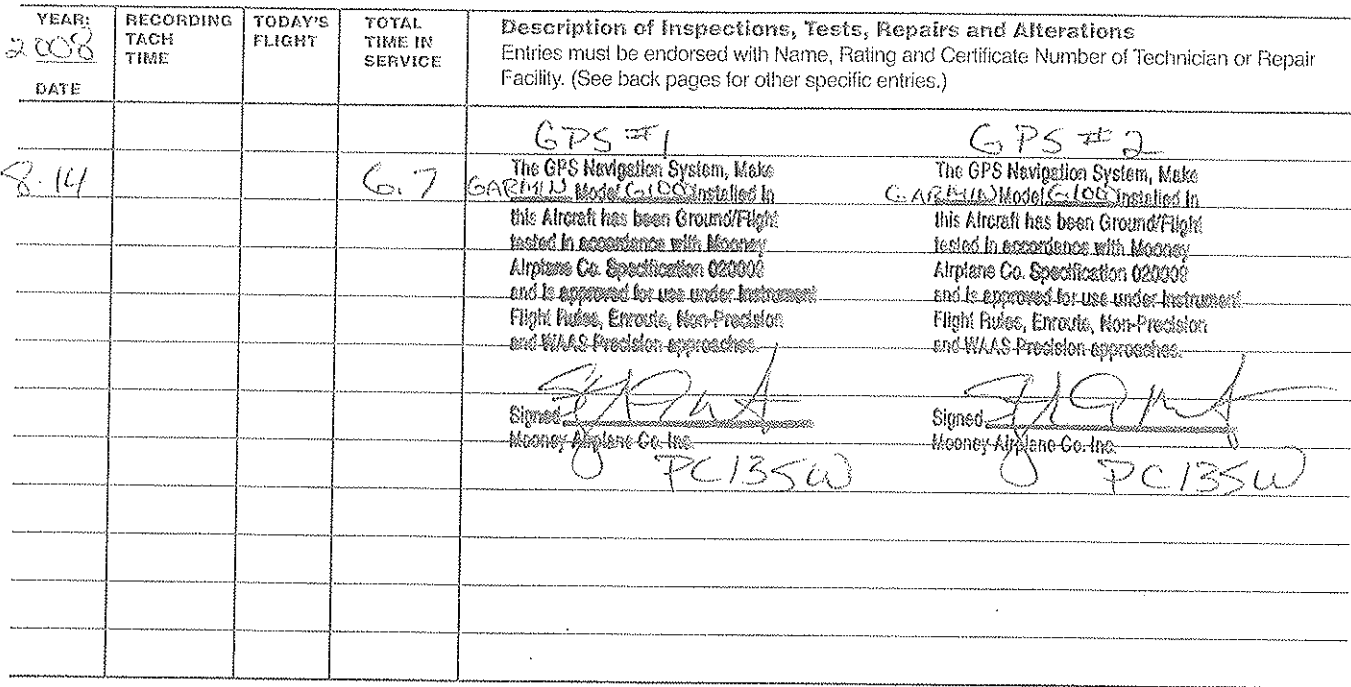 YEAR: 2008
DATE
RECORDING TACH TIME
TODAY'S FLIGHT
TOTAL TIME IN SERVICE
Description of Inspections, Tests, Repairs and Alterations
Entries must be endorsed with Name, Rating and Certificate Number of Technician or Repair
Facility. (See back pages for other specific entries.)
GPS #1
8.14 6.7
The GPS Navigation System, Make
GARMIN Model G100 installed in
this Aircraft has been Ground/Flight
tested in accordance with Mooney
Airplane Co. Specification 020009
and is approved for use under Instrument
Flight Rules, Enroute, Non-Precision
and WAAS Precision approaches.
Signed
Mooney Airplane Co. Inc.
PC13SW
GPS #2
The GPS Navigation System, Make
GARMIN Model G100 installed in
this Aircraft has been Ground/Flight
tested in accordance with Mooney
Airplane Co. Specification 020009
and is approved for use under Instrument
Flight Rules, Enroute, Non-Precision
and WAAS Precision approaches.
Signed
Mooney Airplane Co. Inc.
PC13SW